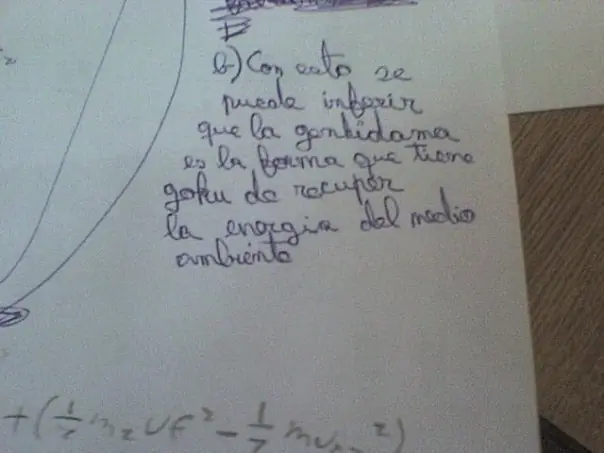 b) Con esto se
puede inferir
que la genkidama
es la forma que tiene
goku de recuper
la energia del medio
ambiente
+ (1/2 m₂ Vf² - 1/2 m